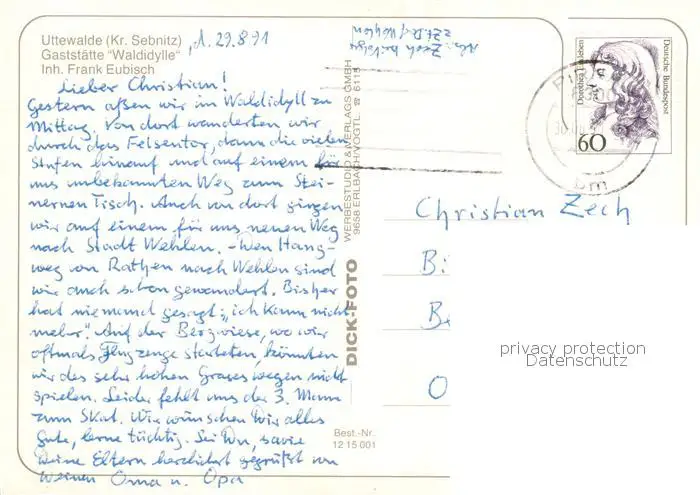 Uttewalde (Kr. Sebnitz)
Gaststätte "Waldidylle"
Inh. Frank Eubisch
, d. 29.8.91
Lieber Christian!
Gestern aßen wir im Waldidyll zu
Mittag, von dort wanderten wir
durch das Felsentor, dann die vielen
Stufen hinauf und auf einem für
uns unbekannten Weg zum Stei-
nernen Tisch. Auch von dort gingen
wir auf einem für uns neuen Weg
nach Stadt Wehlen. – Den Hang-
weg von Rathen nach Wehlen sind
wir auch schon gewandert. Bisher
hat niemand gesagt: „ich kann nicht
mehr". Auf der Bergwiese, wo wir
oftmals Flugzeuge starteten, könnten
wir des sehr hohen Grases wegen nicht
spielen. Leider fehlt uns der 3. Mann
zum Skat. Wir wünschen Dir alles
Gute, lerne tüchtig. Sei Du, sowie
Deine Eltern herzlichst gegrüßt von
Deinen Oma u. Opa
DICK-FOTO
WERBESTUDIO & VERLAGS GMBH
9658 ERLBACH/VOGTL. ☎ 6115
Best.-Nr.
12 15 001
Deutsche Bundespost
60
Christian Zech
B
B
O
privacy protection
Datenschutz